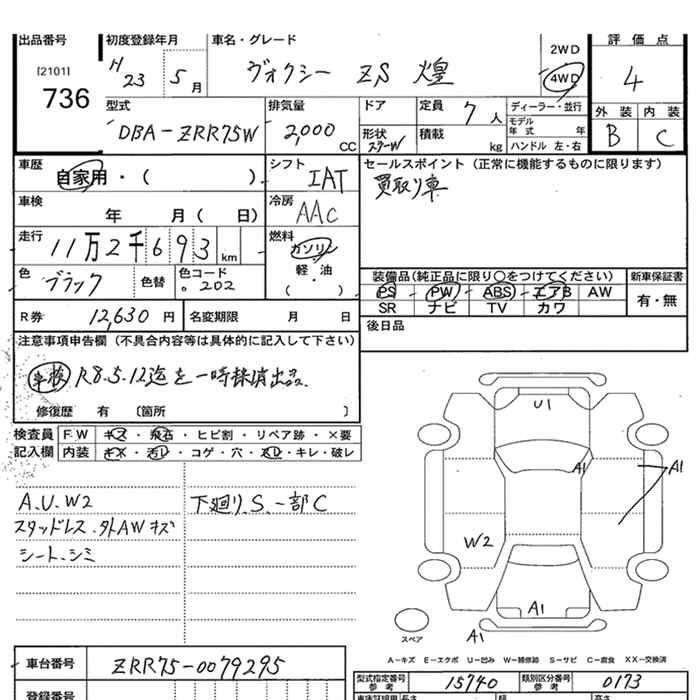 出品番号
[2101]
736
初度登録年月
H23 5月
車名・グレード
ヴォクシー ZS 煌
2WD
4WD
評価点
4
外装 内装
B C
型式
DBA-ZRR75W
排気量
2,000 CC
ドア
形状
ステーW
定員 7人
積載 kg
ディーラー・並行
モデル
年式 年
ハンドル 左・右
車歴
自家用・( )
シフト
IAT
セールスポイント(正常に機能するものに限ります)
買取り車
車検
年 月( 日)
冷房
AAC
走行
11万2千693km
燃料
ガソリン
軽・油
( ・ )
色
ブラック
色替
色コード
202
装備品(純正品に限り○をつけてください)
PS PW ABS エアB AW
SR ナビ TV カワ
新車保証書
有・無
R券 12,630円
名変期限 月 日
後日品
注意事項申告欄(不具合内容等は具体的に記入して下さい)
車検 R8.5.12迄を一時抹消出品.
修復歴 有 〔箇所 〕
検査員
記入欄
FW キズ・飛石・ヒビ割・リペア跡・×要
内装 キズ・汚レ・コゲ・穴・スレ・キレ・破レ
A.U.W2
スタッドレス.外AWキズ
シート.シミ
下廻り.S.一部C
U1
A1
A1
W2
A1
A1
スペア
A-キズ E-エクボ U-凹み W-補修跡 S-サビ C-腐食 XX-交換済
車台番号
ZRR75-0079295
型式指定番号
参考
15740
類別区分番号
参考
0173
登録番号
長さ
幅
高さ